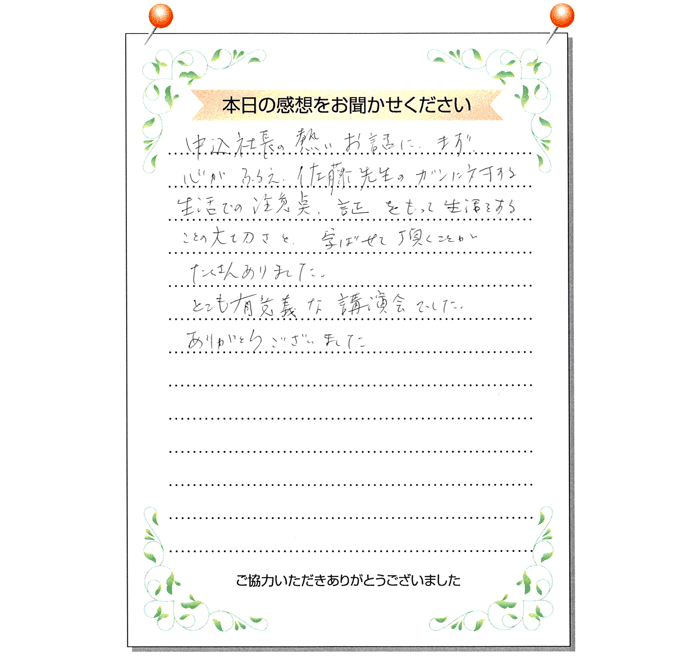 本日の感想をお聞かせください
申込社長の熱いお話に、まず
心がふるえ、佐藤先生のガンに対する
生活での注意点、証をもって生活をする
ことの大切さを、学ばせて頂くことが
たくさんありました。
とても有意義な講演会でした。
ありがとうございました
ご協力いただきありがとうございました